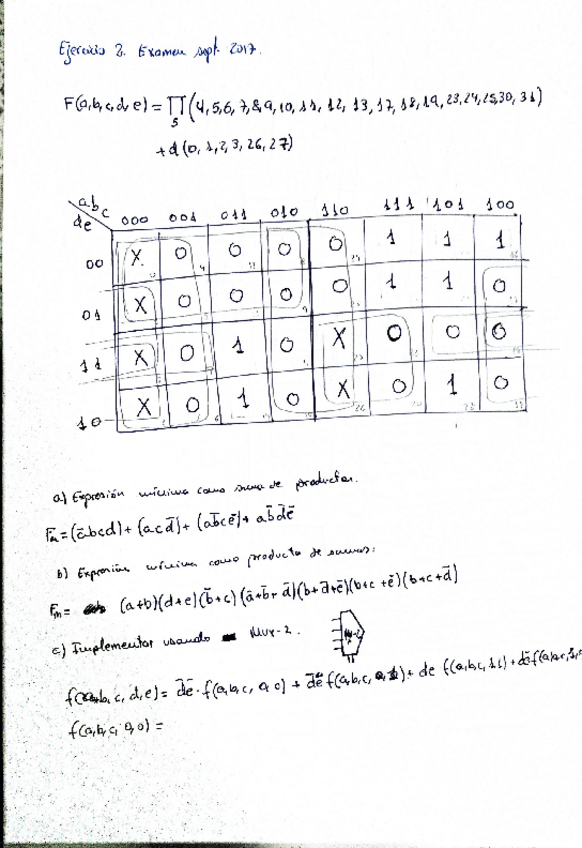 Ejercicio 2. Examen sept. 2017.
F(a,b,c,d,e) = ∏5 (4,5,6,7,8,9,10,11,12,13,17,18,19,23,24,25,30,31)
+d(0,1,2,3,26,27)
abc
de 000 001 011 010 110 111 101 100
00 X 0 0 0 0 1 1 1
01 X 0 0 0 0 1 1 0
11 X 0 1 0 X 0 0 0
10 X 0 1 0 X 0 1 0
a) Expresión mínima como suma de productos.
Fm = (ābcd) + (acd̄) + (ab̄cē) + ab̄d̄ē
b) Expresión mínima como producto de sumas:
Fm = (a+b)(d+e)(b̄+c)(ā+b̄+d̄)(b+d̄+ē)(b+c+ē)(b+c+d̄)
c) Implementar usando Mux-2.
Mux-2
f(a,b,c,d,e) = d̄ē·f(a,b,c,0,0) + d̄e f(a,b,c,0,1) + de f(a,b,c,1,1) + dē f(a,b,c,1,
f(a,b,c,0,0) =